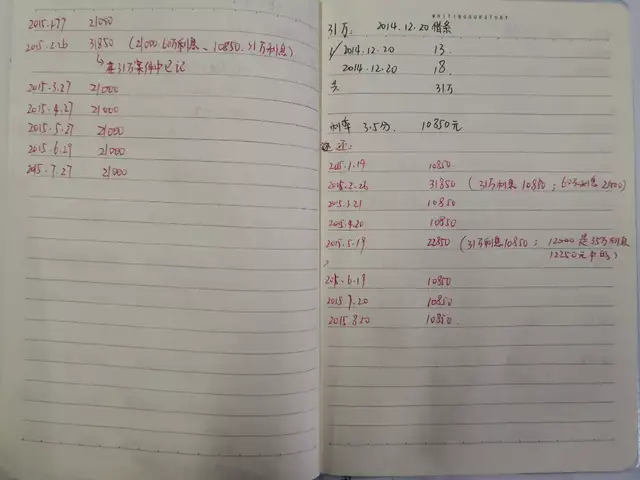 2015.1.27 21000
2015.2.26 31850 (21000.60万利息、10850.31万利息)
↳ 在31万案件中已记
2015.3.27 21000
2015.4.27 21000
2015.5.27 21000
2015.6.29 21000
2015.7.27 21000
31万: 2014.12.20 借条
√ 2014.12.20 13
2014.12.20 18
共 31万
利率 3.5分. 10850元
还:
2015.1.19 10850
2015.2.26 31850 (31万利息10850; 60万利息21000)
2015.3.21 10850
2015.4.20 10850
2015.5.19 22850 (31万利息10850; 12000是35万利息
12250元中的)
2015.6.19 10850
2015.7.20 10850
2015.8.20 10850.